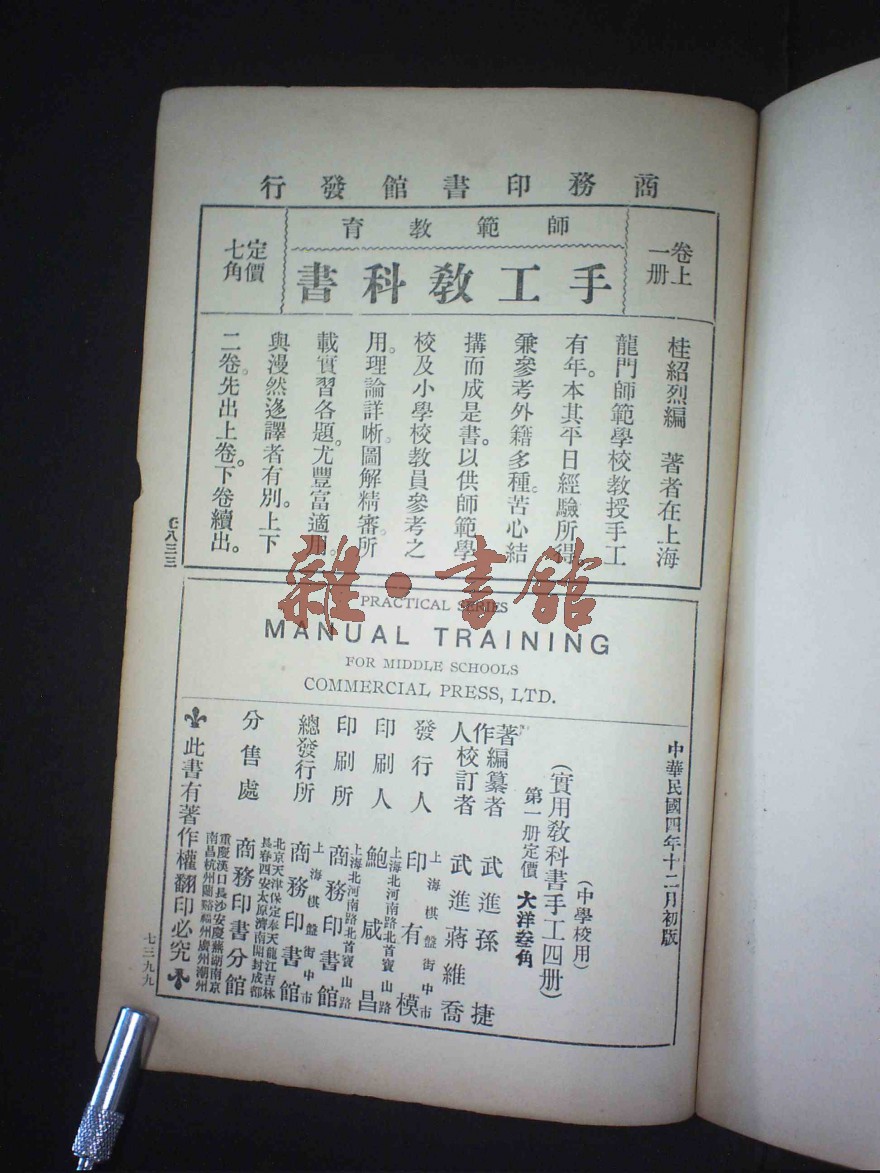 商務印書館發行
卷上
一册
師範教育
手工教科書
定價
七角
桂紹烈編 著者在上海
龍門師範學校教授手工
有年。本其平日經驗所得。
兼參考外籍多種。苦心結
搆而成是書。以供師範學
校及小學校教員參考之
用。理論詳晰。圖解精審。所
載實習各題。尤豐富適用。
與漫然迻譯者有別。上下
二卷。先出上卷。下卷續出。
G八三三
雜·書館
PRACTICAL SERIES
MANUAL TRAINING
FOR MIDDLE SCHOOLS
COMMERCIAL PRESS, LTD.
中華民國四年十二月初版
(中學校用)
(實用教科書手工四册)
第一册定價大洋叁角
著作人
編纂者 武進孫捷
校訂者 武進蔣維喬
上海棋盤街中市
發行人 印有模
上海北河南路北首寶山路
印刷人 鮑咸昌
上海北河南路北首寶山路
印刷所 商務印書館
上海棋盤街中市
總發行所 商務印書館
北京天津保定奉天龍江吉林
長春西安太原濟南開封成都
分售處 商務印書分館
重慶漢口長沙安慶蕪湖南京
南昌杭州蘭谿福州廣州潮州
此書有著作權翻印必究
七三九九